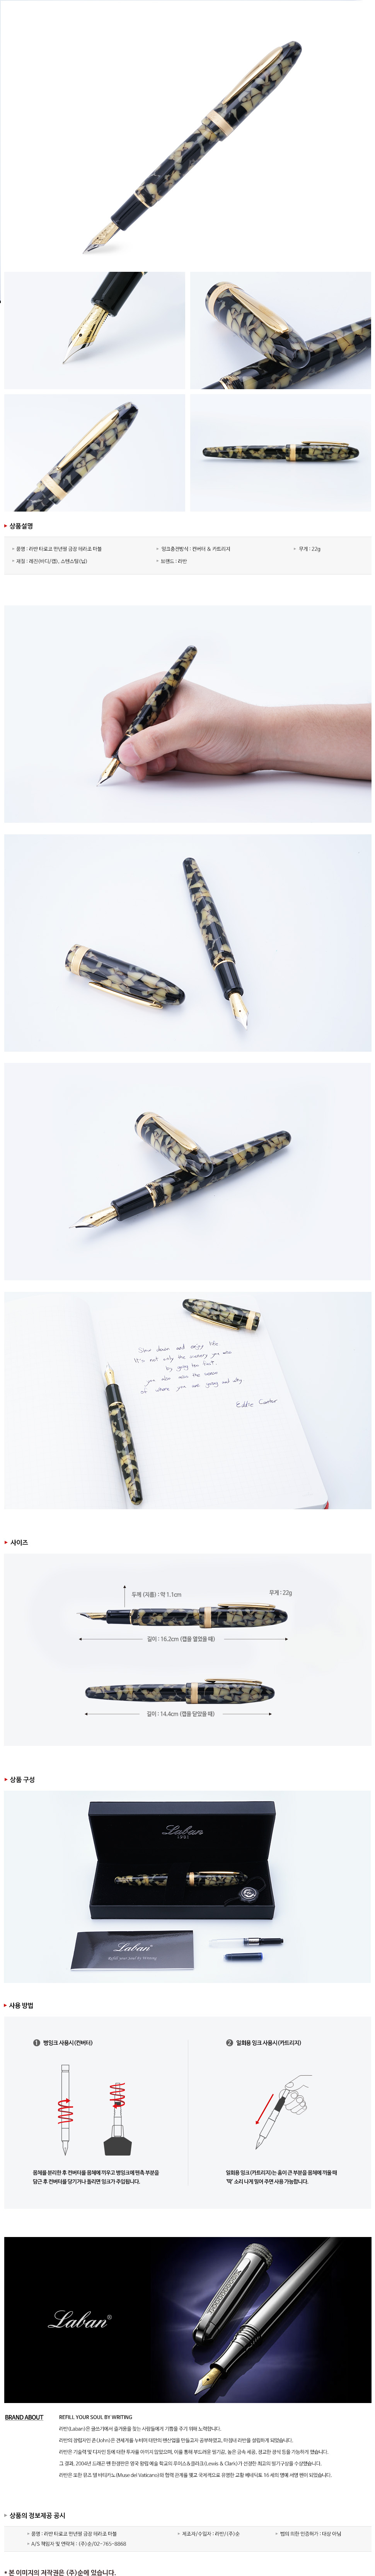 상품설명
품명 : 라반 타로코 만년필 금장 테라조 마블
잉크충전방식 : 컨버터 & 카트리지
무게 : 22g
재질 : 레진(바디/캡), 스텐스틸(닙)
브랜드 : 라반
Slow down and enjoy life
It's not only the scenery you miss
by going too fast.
you also miss the sense
of where you are going and why
Eddie Cantor
사이즈
두께 (지름) : 약 1.1cm
무게 : 22g
길이 : 16.2cm (캡을 열었을 때)
길이 : 14.4cm (캡을 닫았을 때)
상품 구성
Laban
Laban
Refill your soul by Writing
사용 방법
1 병잉크 사용시(컨버터)
2 일회용 잉크 사용시(카트리지)
몸체를 분리한 후 컨버터를 몸체에 끼우고 병잉크에 펜촉 부분을
담근 후 컨버터를 당기거나 돌리면 잉크가 주입됩니다.
일회용 잉크(카트리지)는 홈이 큰 부분을 몸체에 끼울 때
'딱' 소리 나게 밀어 주면 사용 가능합니다.
Laban®
BRAND ABOUT
REFILL YOUR SOUL BY WRITING
라반(Laban)은 글쓰기에서 즐거움을 찾는 사람들에게 기쁨을 주기 위해 노력합니다.
라반의 창립자인 존(John)은 전세계를 누비며 대만의 펜산업을 만들고자 공부하였고, 마침내 라반을 설립하게 되었습니다.
라반은 기술력 및 디자인 등에 대한 투자를 아끼지 않았으며, 이를 통해 부드러운 필기감, 높은 금속 세공, 정교한 장식 등을 가능하게 했습니다.
그 결과, 2004년 드래곤 펜 한정판은 영국 왕립 예술 학교의 루이스&클라크(Lewis & Clark)가 선정한 최고의 필기구상을 수상했습니다.
라반은 또한 뮤즈 델 바티카노(Muse del Vaticano)와 협력 관계를 맺고 국제적으로 유명한
상품의 정보제공 공시
품명 : 라반 타로코 만년필 금장 테라조 마블
제조자/수입자 : 라반/(주)순
법의 의한 인증허가 : 대상 아님
A/S 책임자 및 연락처 : (주)순/02-765-8868
* 본 이미지의 저작권은 (주)순에 있습니다.